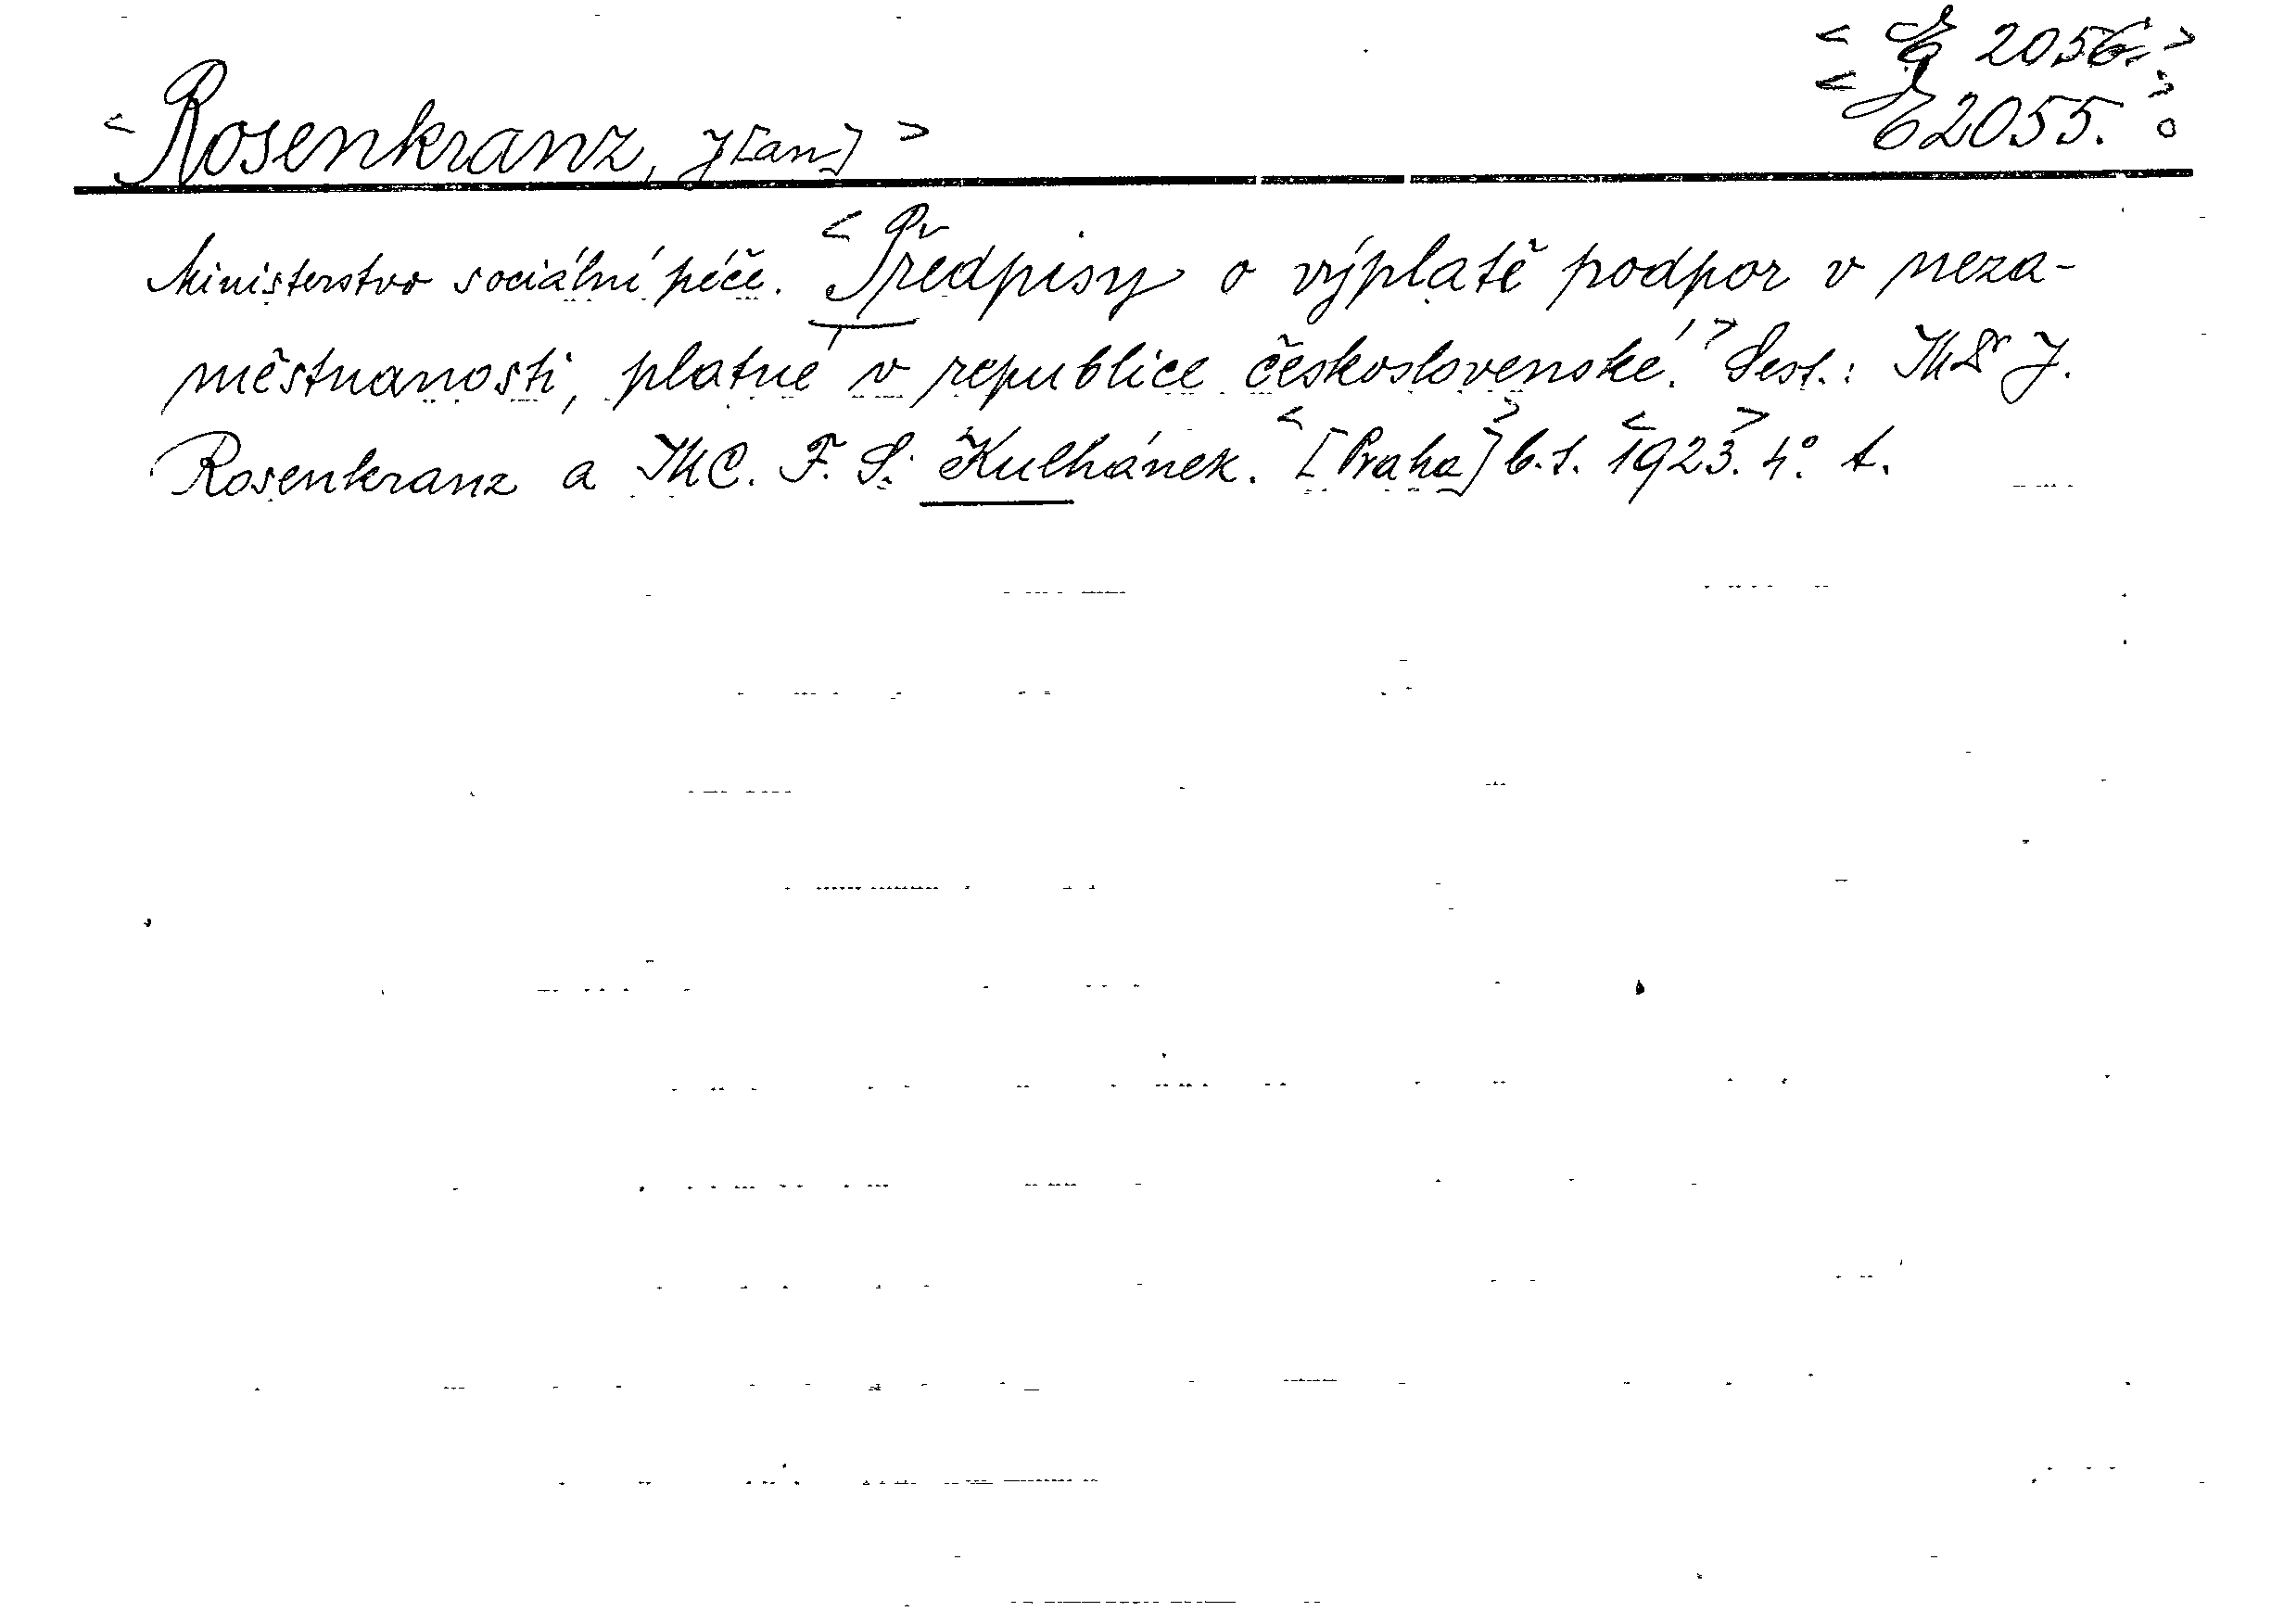 < Rosenkranz, J[an] >
< G 2056. >
< G 2055. >
Ministerstvo sociální péče. < Předpisy o výplatě podpor v neza-
městnanosti, platné v republice československé. > Sest.: JUDr J.
Rosenkranz a JUC. F. S. Kulhánek. < [Praha] > b. t. < 1923. > 4°. t.